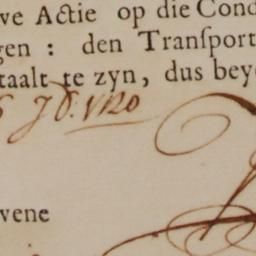 ve Actie op die Cond
gen: den Tranſport
taalt te zyn, dus bey
vene